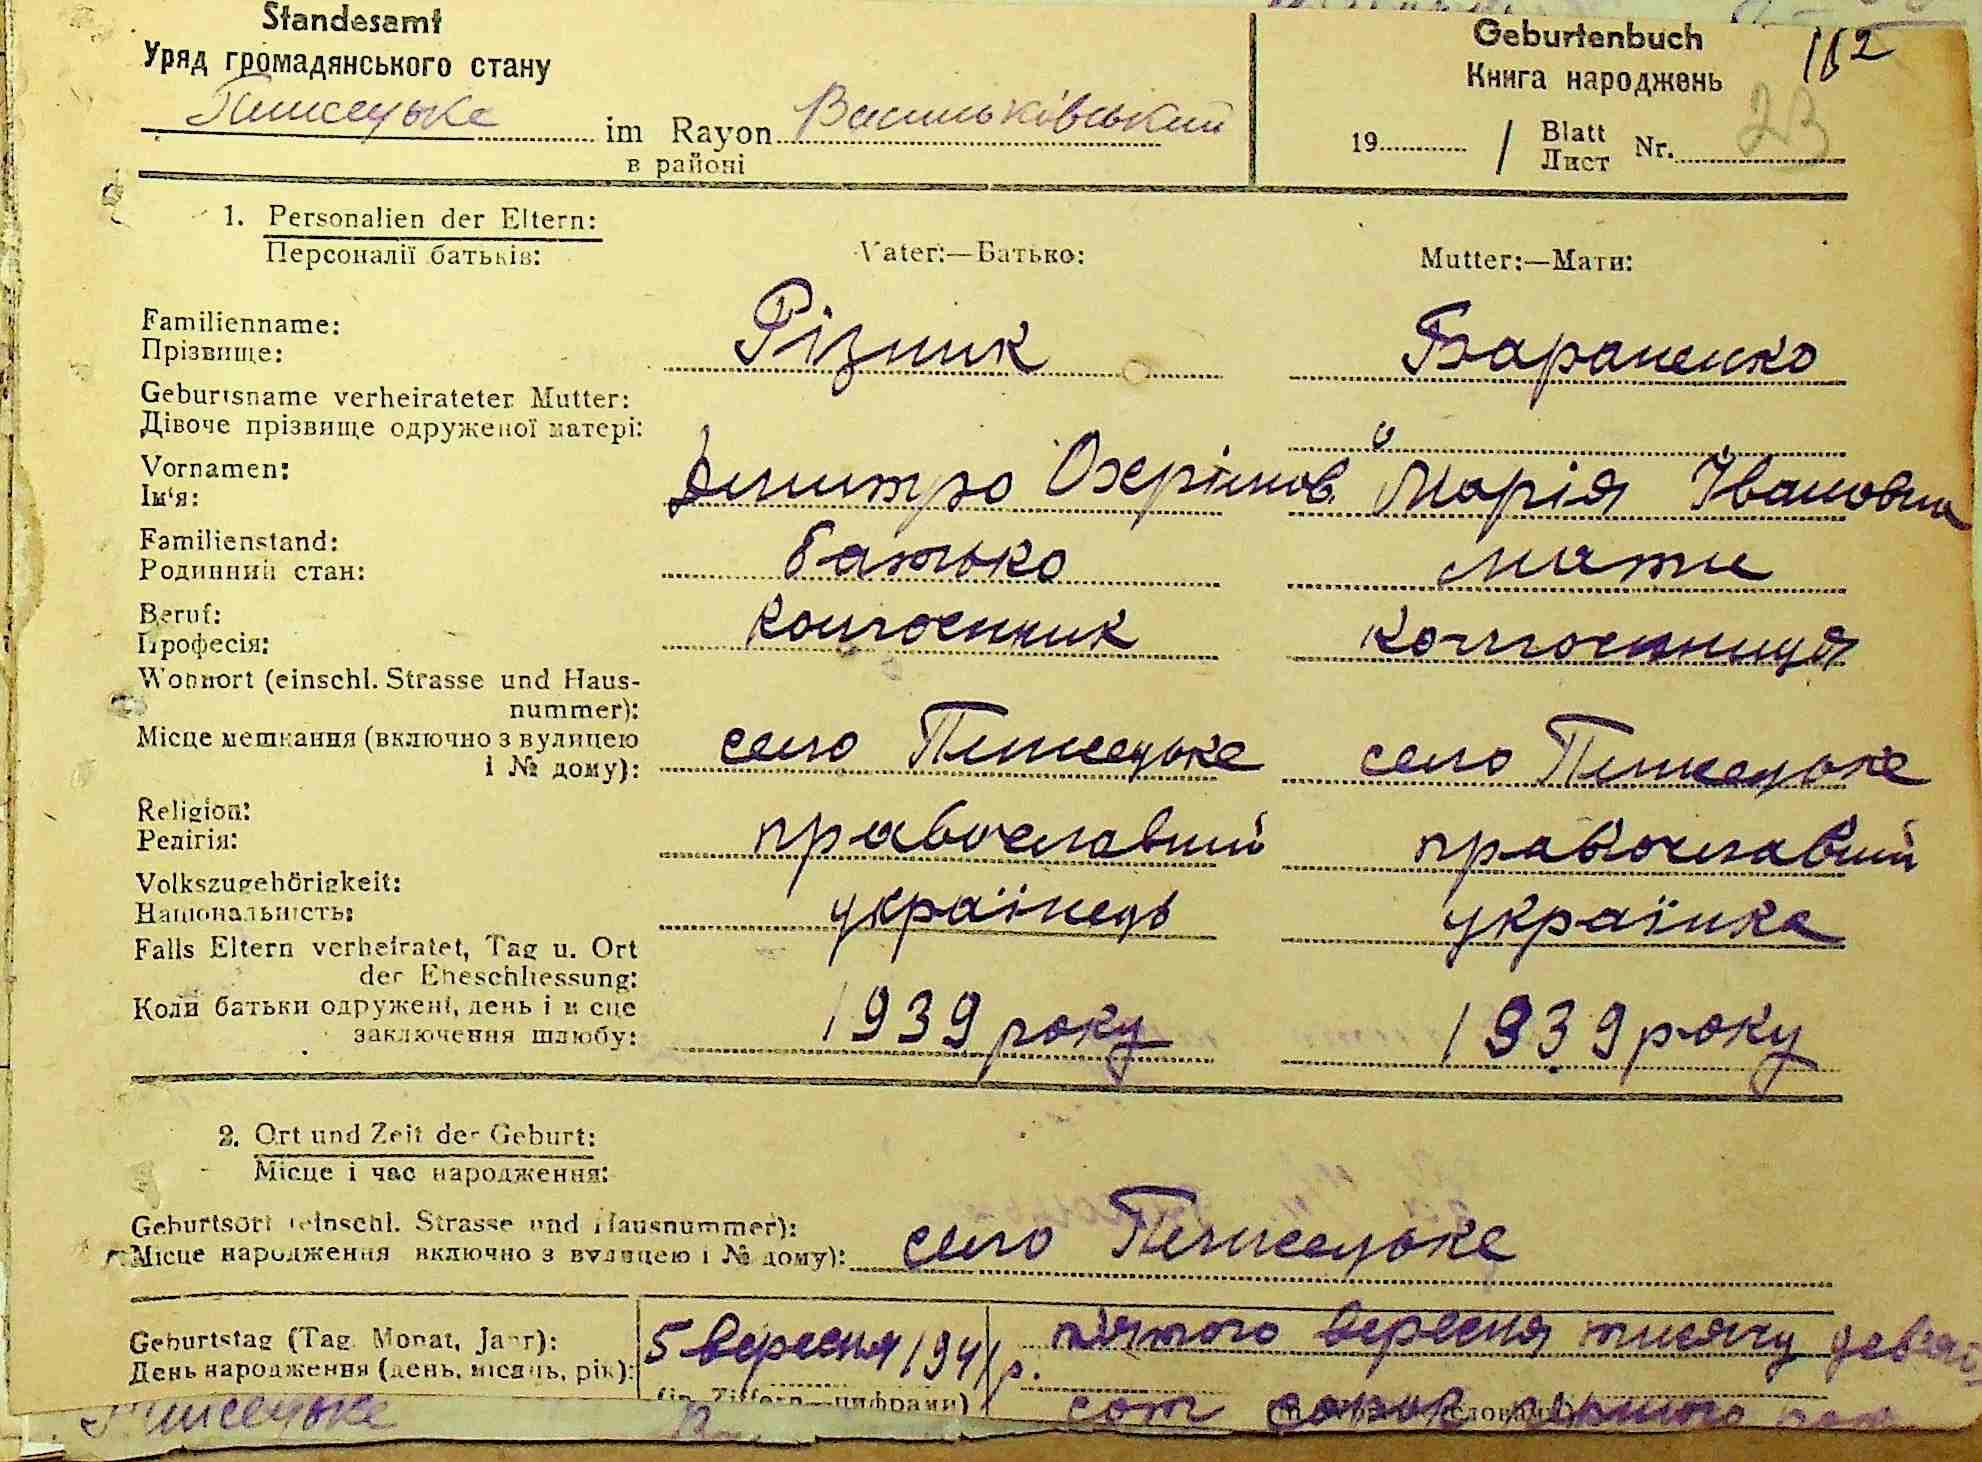 Standesamt
Уряд громадянського стану
Плисецьке im Rayon Васильківський
в районі
Geburtenbuch
Книга народжень
162
19 / Blatt Лист Nr. 23
1. Personalien der Eltern:
Персоналії батьків:
Vater:—Батько:
Mutter:—Мати:
Familienname:
Прізвище:
Різник
Бараненко
Geburtsname verheirateter Mutter:
Дівоче прізвище одруженої матері:
Vornamen:
Ім'я:
Дмитро Охрімов.
Марія Івановна
Familienstand:
Родинний стан:
батько
мати
Beruf:
Професія:
колгоспник
колгоспниця
Wohnort (einschl. Strasse und Haus-
nummer):
Місце мешкання (включно з вулицею
і № дому):
село Плисецьке
село Плисецьке
Religion:
Релігія:
православний
православний
Volkszugehörigkeit:
Національність:
українець
українка
Falls Eltern verheiratet, Tag u. Ort
der Eheschliessung:
Коли батьки одружені, день і місце
заключення шлюбу:
1939 року
1939 року
2. Ort und Zeit der Geburt:
Місце і час народження:
Geburtsort (einschl. Strasse und Hausnummer):
Місце народження включно з вулицею і № дому):
село Плисецьке
Geburtstag (Tag, Monat, Jahr):
День народження (день, місяць, рік):
5 вересня 1941 р.
(in Ziffern—цифрами)
п'ятого вересня тисячу дев'ят-
сот сорок першого року
Плисецьке